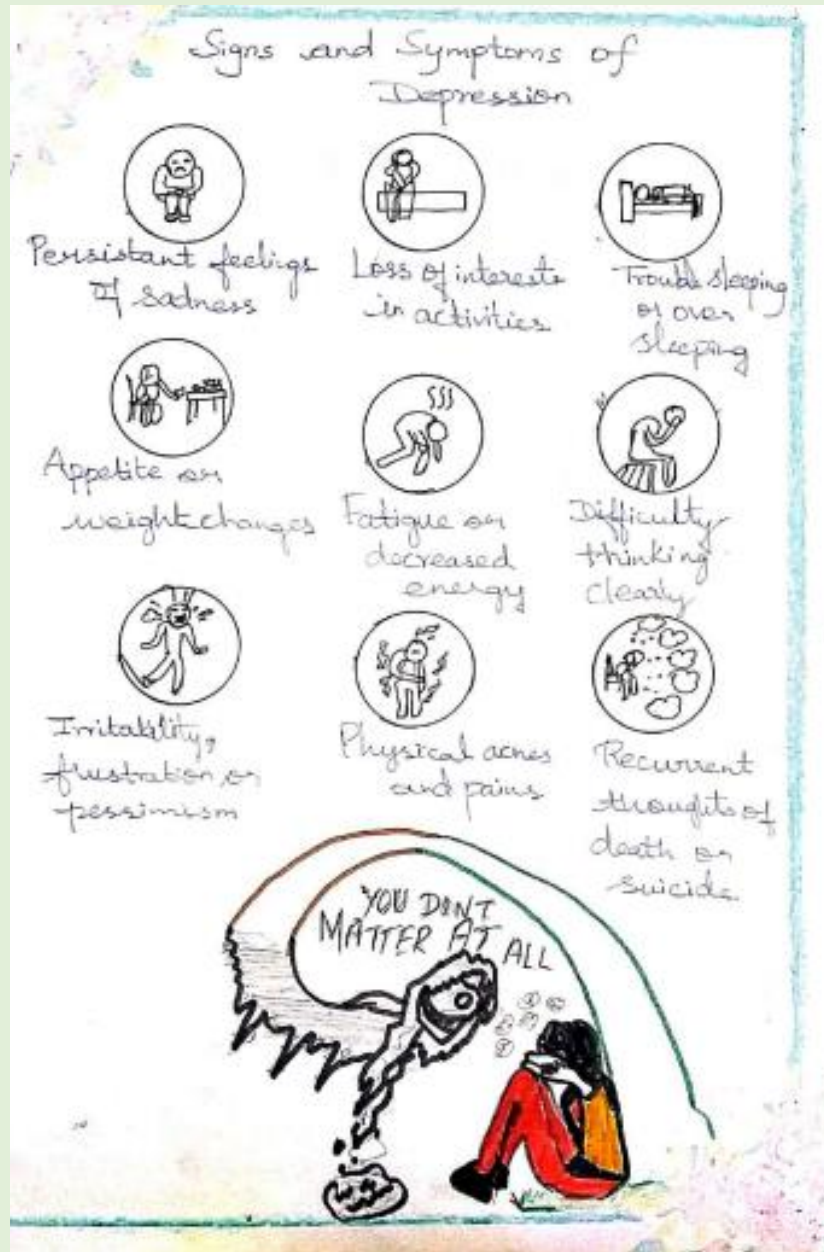 Signs and Symptoms of
Depression
Persistant feelings
of sadness
Loss of interests
in activities
Trouble sleeping
or over
sleeping
Appetite or
weight changes
Fatigue or
decreased
energy
Difficulty
thinking
clearly
Irritability,
frustration or
pessimism
Physical acnes
and pains
Recurrent
thoughts of
death or
suicide
YOU DONT
MATTER AT
ALL